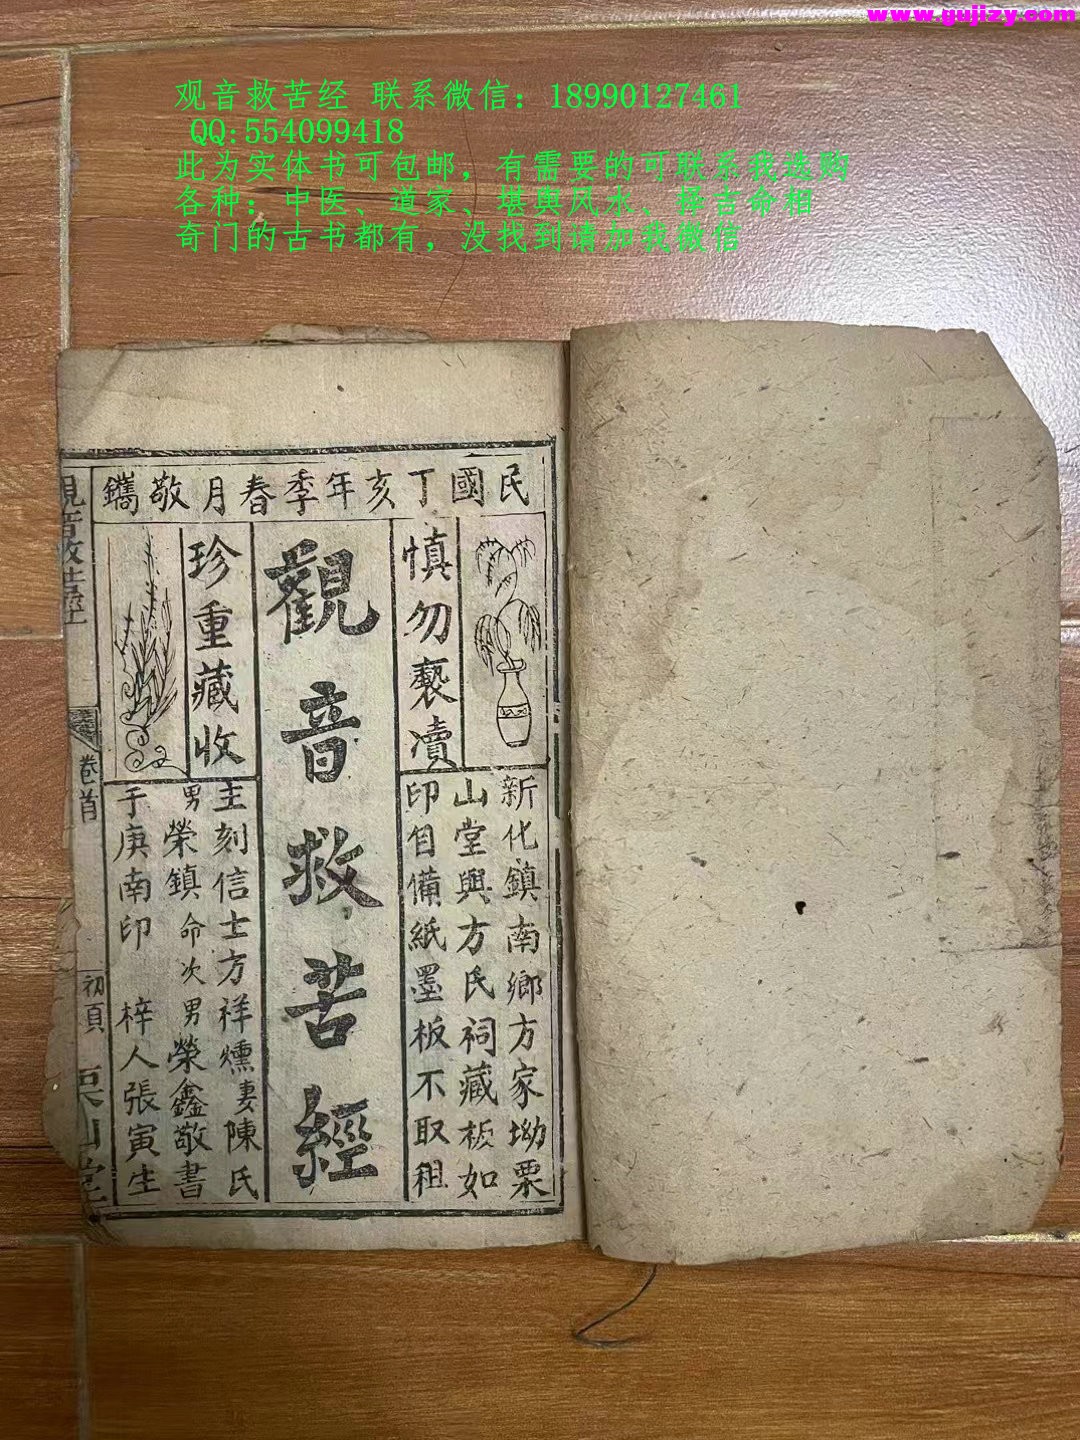 www.gujizy.com
观音救苦经 联系微信：18990127461
QQ:554099418
此为实体书可包邮，有需要的可联系我选购
各种：中医、道家、堪舆风水、择吉命相
奇门的古书都有，没找到请加我微信
民國丁亥年季春月敬鐫
慎勿褻瀆
新化鎮南鄉方家坳栗
山堂與方氏祠藏板如
印自備紙墨板不取租
觀音救苦經
珍重藏收
主刻信士方祥燻妻陳氏
男榮鎮命次男榮鑫敬書
手庚南印 梓人張寅生
觀音救苦經
卷首
初頁
栗山堂